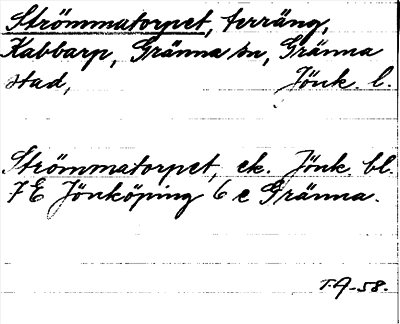 Strömmatorpet, terräng,
Kabbarp, Gränna sn, Gränna
stad, Jönk. l.
Strömmatorpet, ek. Jönk. bl.
7 E Jönköping 6 e Gränna.
T.A-58.